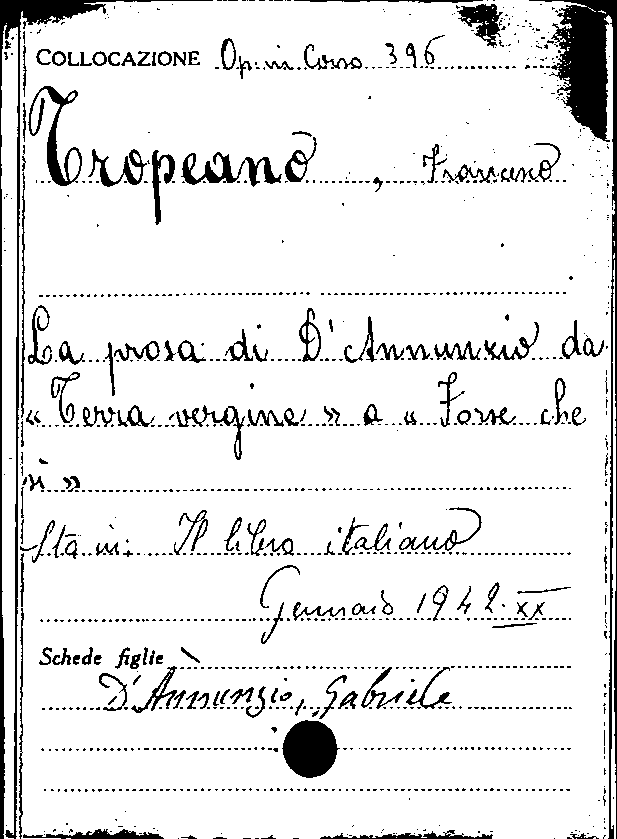 COLLOCAZIONE Op. in Corso 396
Tropeano, Francesco
La prosa di D'Annunzio da
« Terra vergine » a « Forse che
sì »
Sta in: Il libro italiano
Gennaio 1942. XX
Schede figlie
D'Annunzio, Gabriele